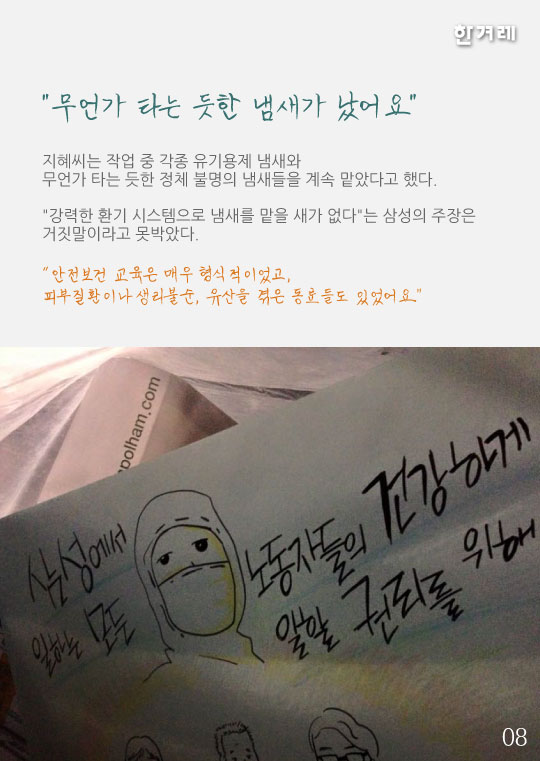 한겨레
"무언가 타는 듯한 냄새가 났어요"
지혜씨는 작업 중 각종 유기용제 냄새와
무언가 타는 듯한 정체 불명의 냄새들을 계속 맡았다고 했다.
"강력한 환기 시스템으로 냄새를 맡을 새가 없다"는 삼성의 주장은
거짓말이라고 못박았다.
"안전보건 교육은 매우 형식적이었고,
피부질환이나 생리불순, 유산을 겪은 동료들도 있었어요"
polham.com
삼성에서 노동자들의 건강하게
일하는 모든 일할 권리를 위해
08